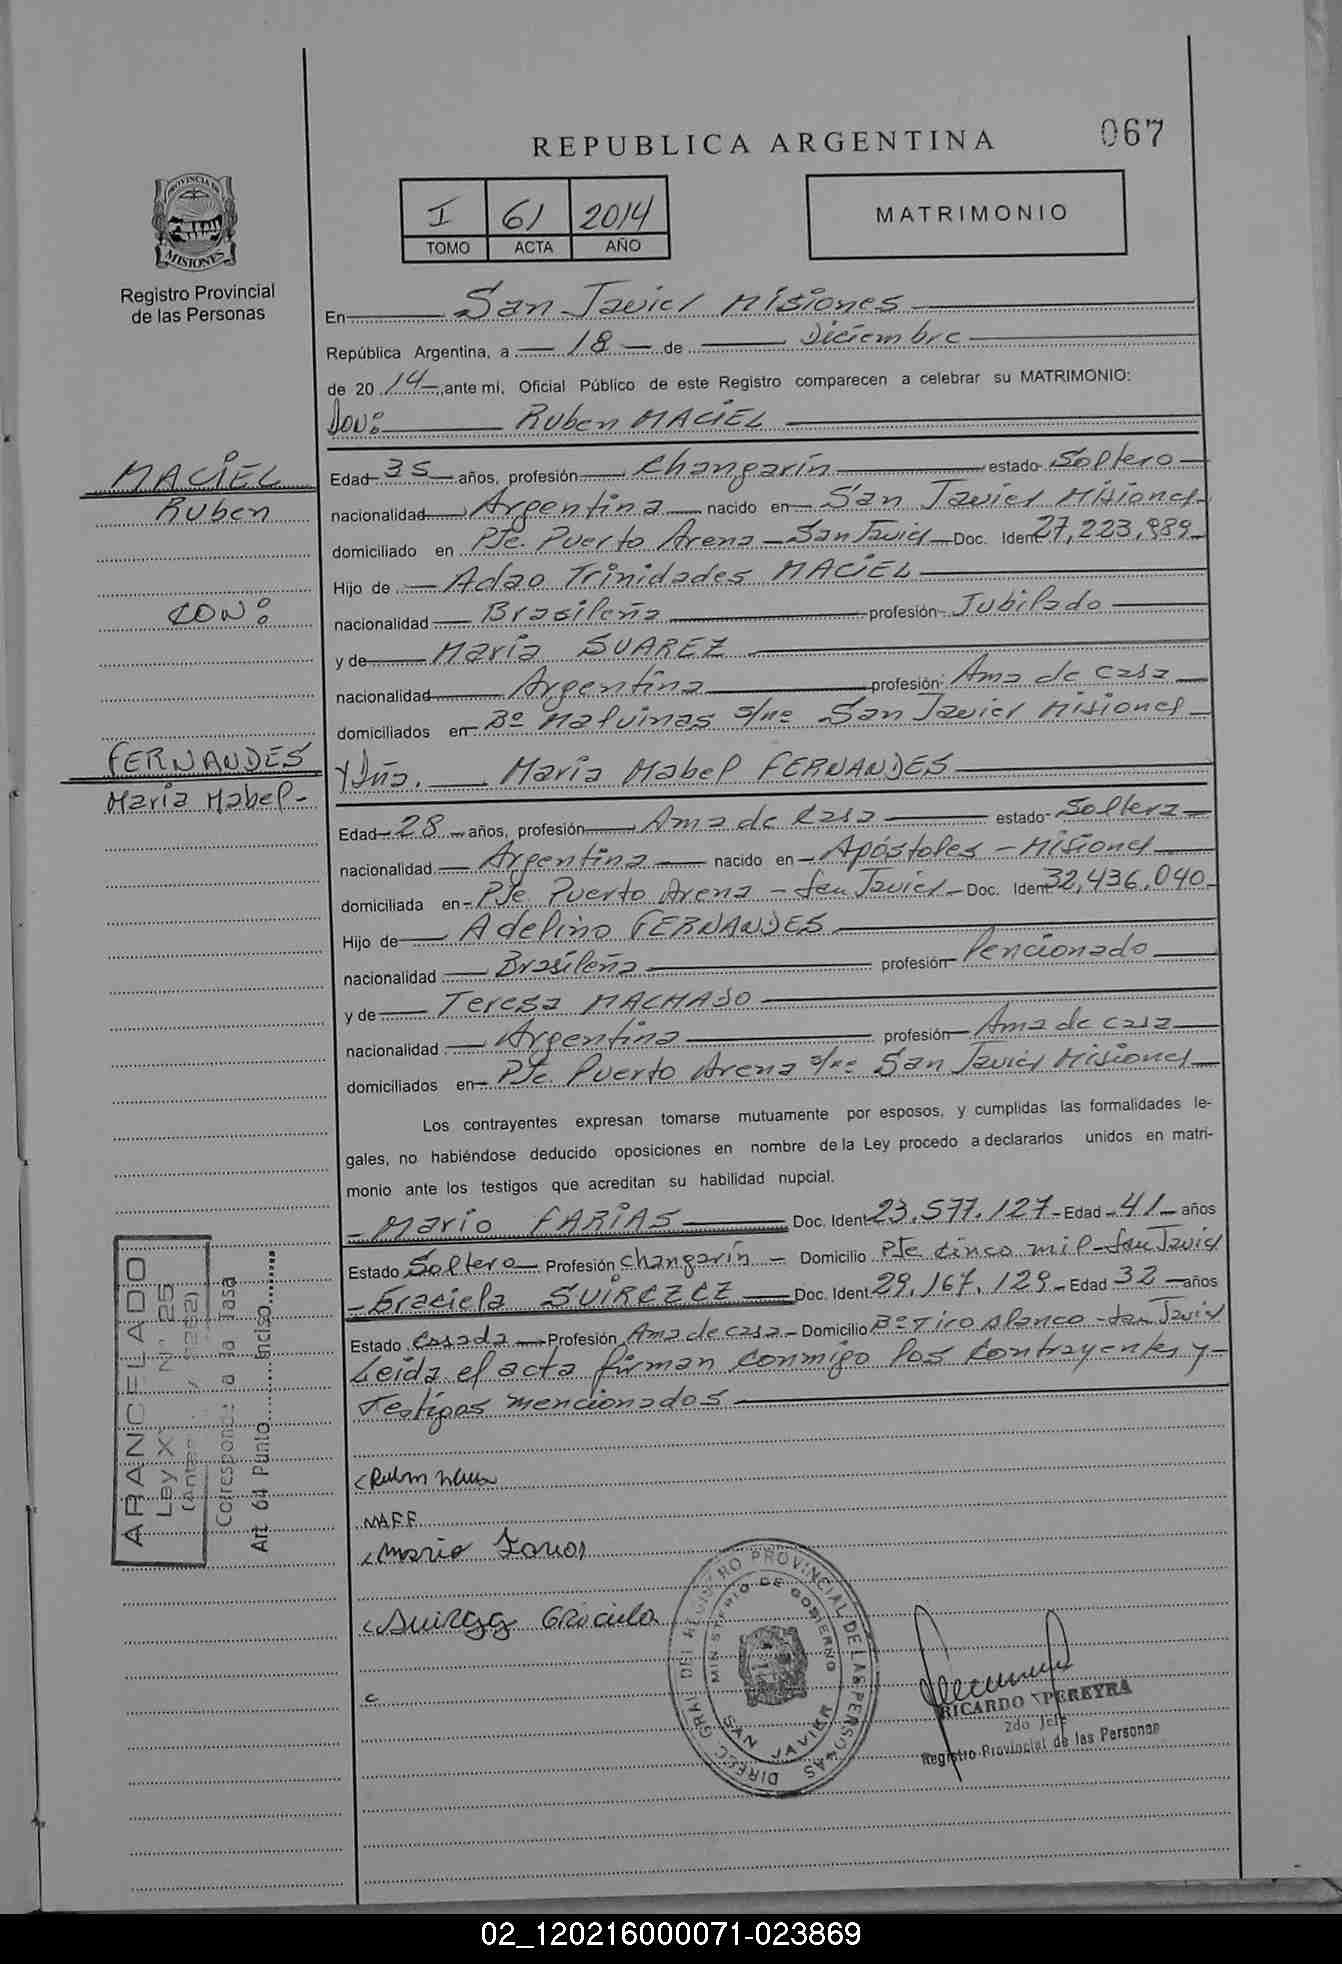 067
REPUBLICA ARGENTINA
I 61 2014
TOMO ACTA AÑO
MATRIMONIO
PROVINCIA DE
MISIONES
Registro Provincial
de las Personas
En San Javier Misiones
República Argentina, a 18 de Diciembre
de 2014, ante mi, Oficial Público de este Registro comparecen a celebrar su MATRIMONIO:
Don: Ruben MACIEL
MACIEL
Ruben
CON:
FERNANDES
Maria Mabel-
Edad 35 años, profesión Changarín estado Soltero
nacionalidad Argentina nacido en San Javier Misiones
domiciliado en Pje. Puerto Arena - San Javier Doc. Ident 27,223,989
Hijo de Adao Trinidades MACIEL
nacionalidad Brasileña profesión Jubilado
y de Maria SUAREZ
nacionalidad Argentina profesión Ama de casa
domiciliados en Bº Malvinas s/nº San Javier Misiones
Y Dña. Maria Mabel FERNANDES
Edad 28 años, profesión Ama de casa estado Soltera
nacionalidad Argentina nacido en Apóstoles - Misiones
domiciliada en Pje. Puerto Arena - San Javier Doc. Ident 32,436,040
Hijo de Adelino FERNANDES
nacionalidad Brasileña profesión Pencionado
y de Teresa MACHADO
nacionalidad Argentina profesión Ama de casa
domiciliados en Pje. Puerto Arena s/nº San Javier Misiones
Los contrayentes expresan tomarse mutuamente por esposos, y cumplidas las formalidades le-
gales, no habiéndose deducido oposiciones en nombre de la Ley procedo a declararlos unidos en matri-
monio ante los testigos que acreditan su habilidad nupcial.
Mario FARIAS Doc. Ident 23,577,127 Edad 41 años
Estado Soltero Profesión Changarín Domicilio Pje cinco mil - San Javier
Graciela SUIRCZCZ Doc. Ident 29,167,129 Edad 32 años
Estado Casada Profesión Ama de casa Domicilio Bº Tiro Blanco - San Javier
Leida el acta firman conmigo los contrayentes y
testigos mencionados
ARANCELADO
Ley X Nº 25
Corresponde a la Tasa
Art. 64 Punto Inciso
Ruben
M.A.F.F.
Mario Farias
Graciela
DIREC. GRAL DEL REGISTRO PROVINCIAL DE LAS PERSONAS
MINISTERIO DE GOBIERNO
SAN JAVIER
RICARDO PEREYRA
2do Jefe
Registro Provincial de las Personas
02_120216000071-023869